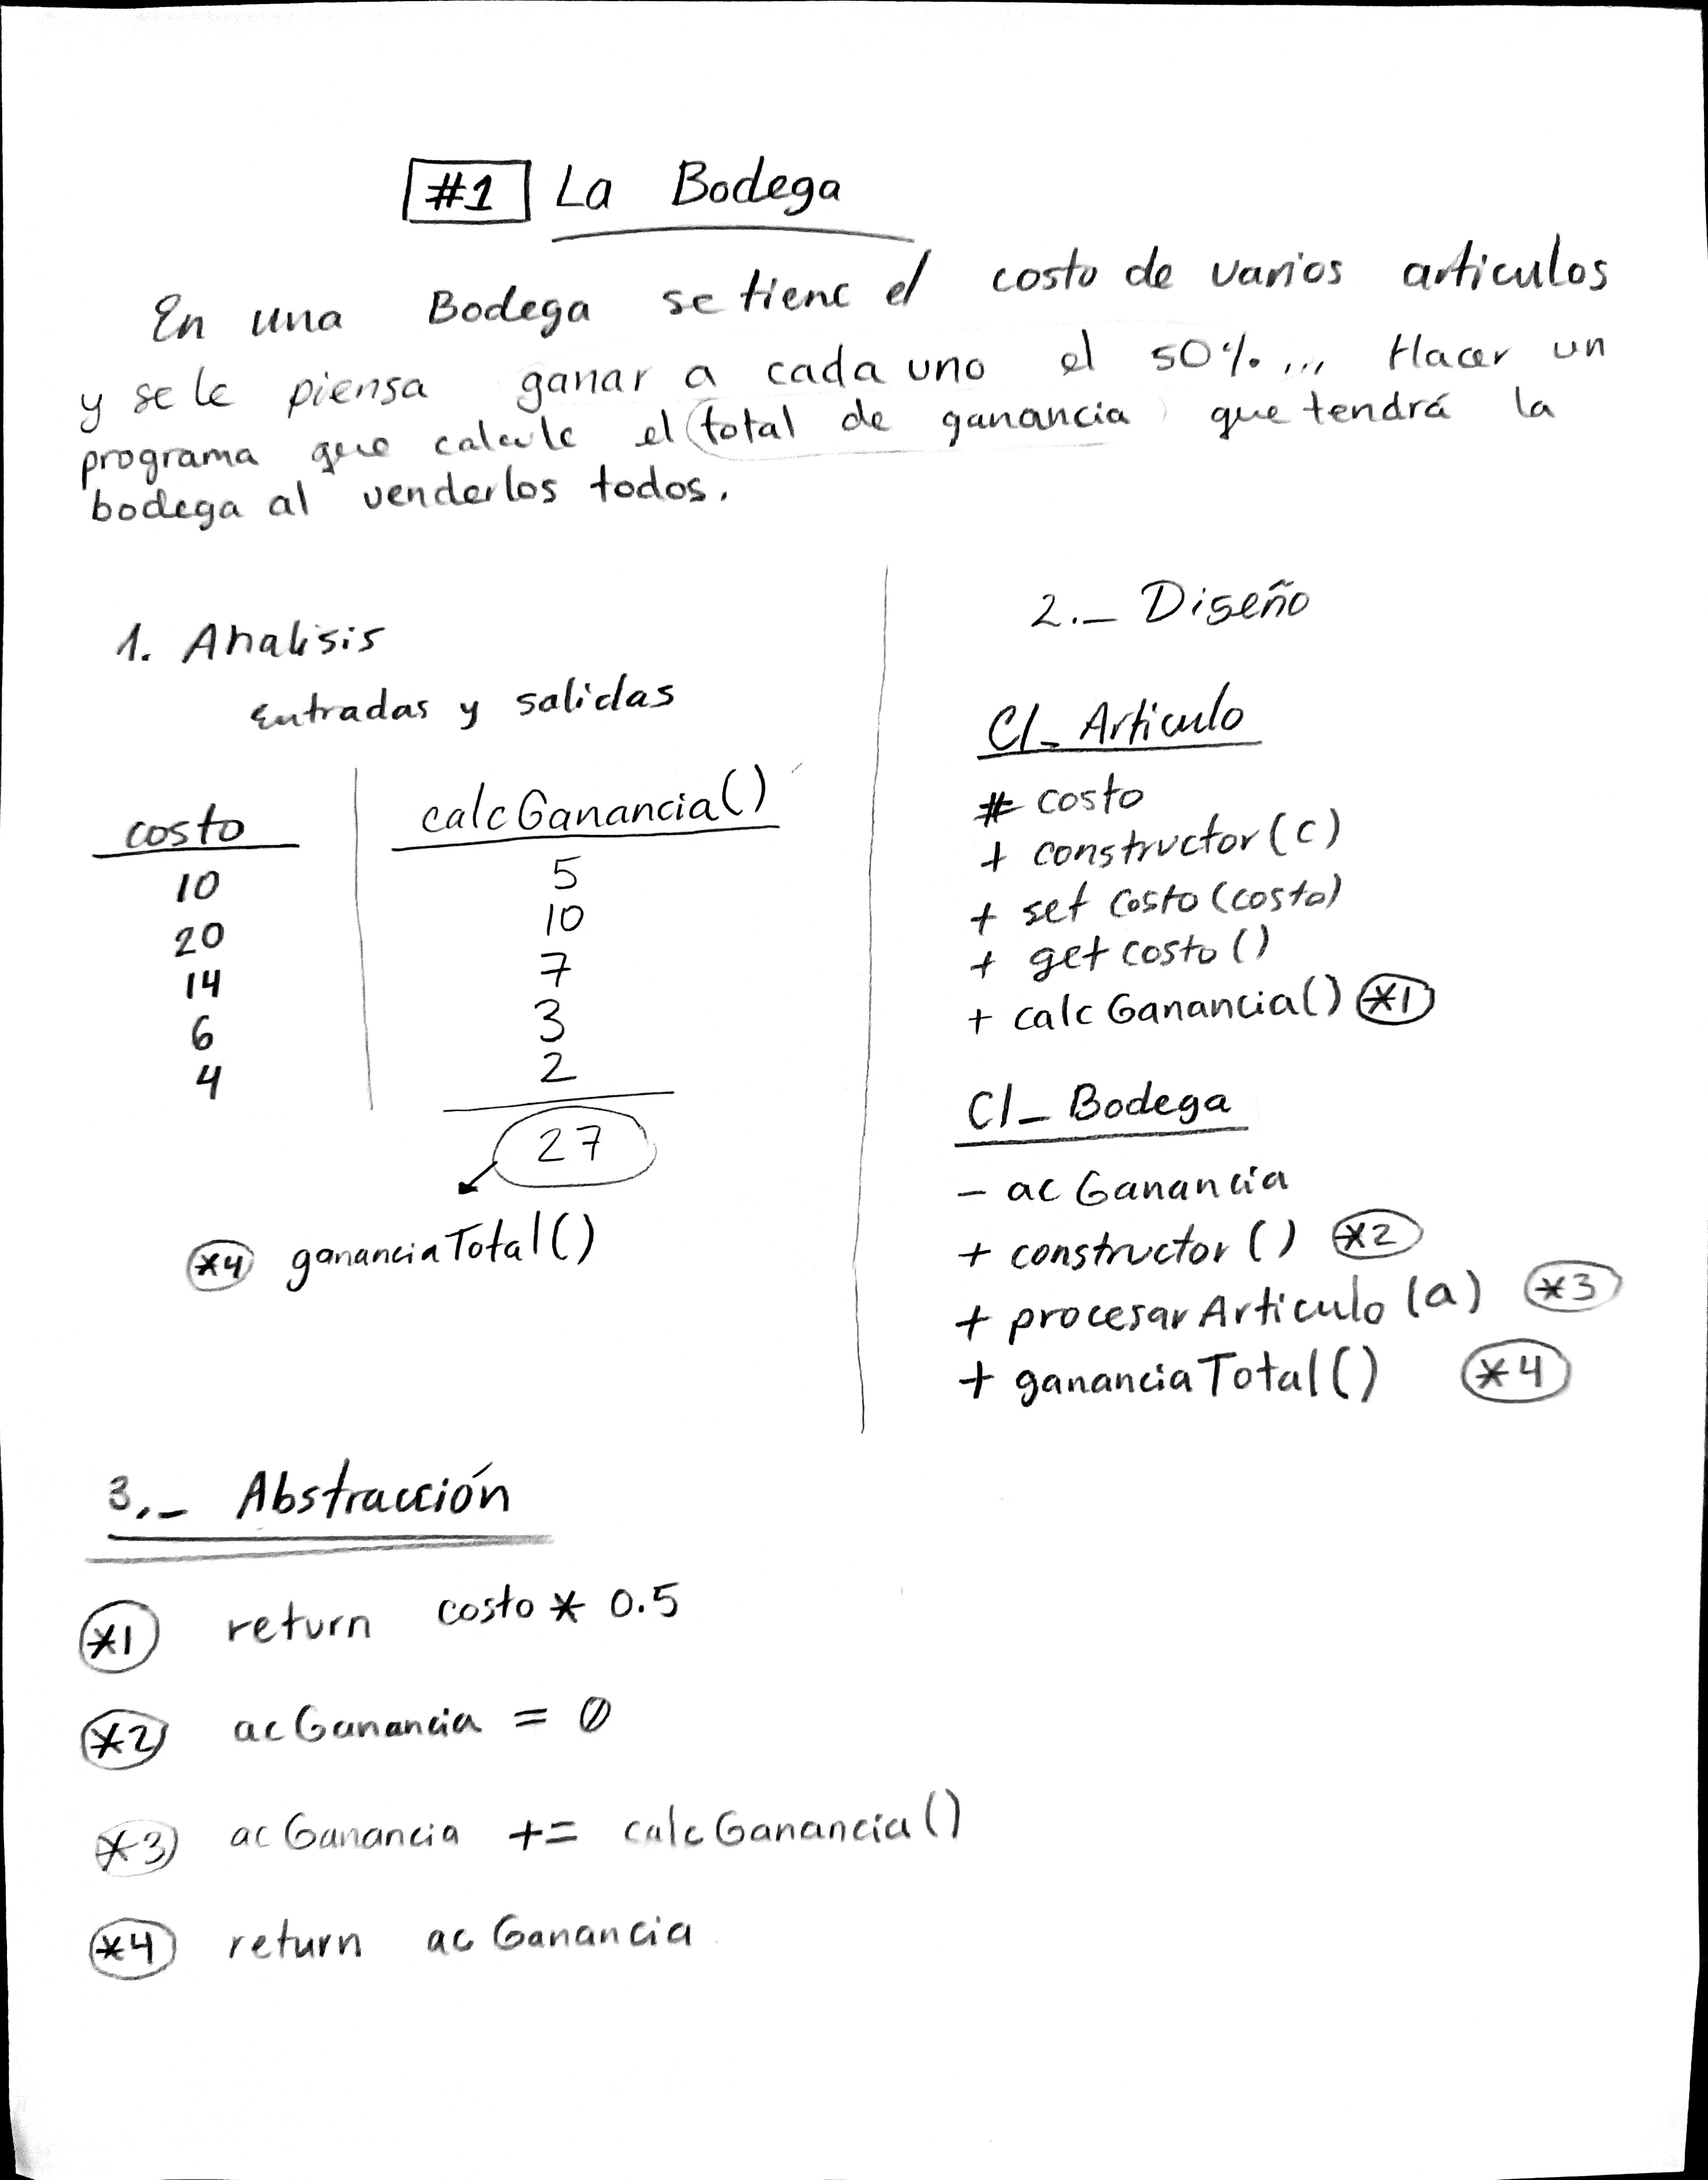 #1 La Bodega
En una Bodega se tiene el costo de varios articulos
y se le piensa ganar a cada uno el 50%... Hacer un
programa que calcule el total de ganancia que tendrá la
bodega al venderlos todos.
1. Analisis
entradas y salidas
costo calcGanancia()
10 5
20 10
14 7
6 3
4 2
27
*4 gananciaTotal()
2._ Diseño
Cl_Articulo
# costo
+ constructor(c)
+ set costo(costo)
+ get costo()
+ calcGanancia() *1
Cl_Bodega
- acGanancia
+ constructor() *2
+ procesarArticulo(a) *3
+ gananciaTotal() *4
3._ Abstracción
*1 return costo * 0.5
*2 acGanancia = 0
*3 acGanancia += calcGanancia()
*4 return acGanancia